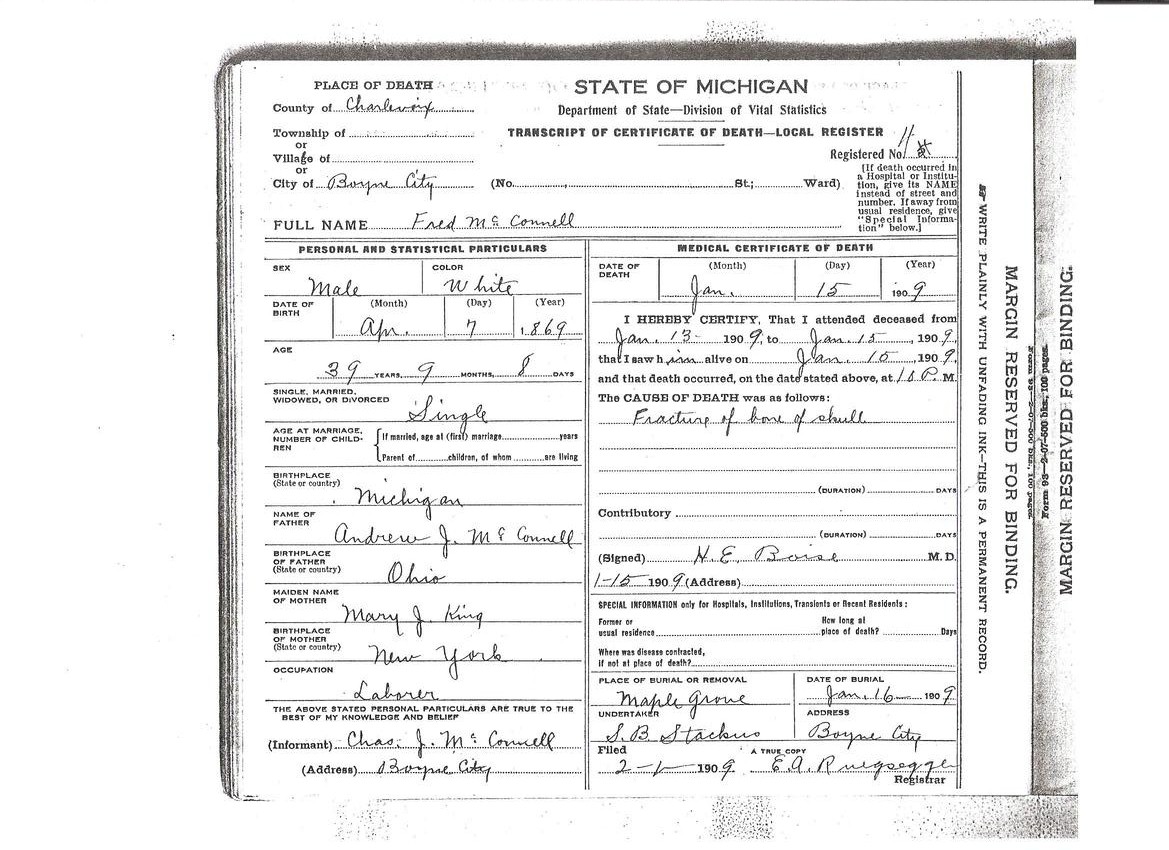 PLACE OF DEATH
County of Charlevoix
Township of
or
Village of
or
City of Boyne City
STATE OF MICHIGAN
Department of State—Division of Vital Statistics
TRANSCRIPT OF CERTIFICATE OF DEATH—LOCAL REGISTER
Registered No.
(No. , St.; Ward)
[If death occurred in
a Hospital or Institu-
tion, give its NAME
instead of street and
number. If away from
usual residence, give
"Special Informa-
tion" below.]
FULL NAME Fred Mc Connell
PERSONAL AND STATISTICAL PARTICULARS
SEX
Male
COLOR
White
DATE OF
BIRTH
(Month) (Day) (Year)
Apr. 7 1869
AGE
39 YEARS, 9 MONTHS, 8 DAYS
SINGLE, MARRIED,
WIDOWED, OR DIVORCED
Single
AGE AT MARRIAGE,
NUMBER OF CHILD-
REN
If married, age at (first) marriage years
Parent of children, of whom are living
BIRTHPLACE
(State or country)
Michigan
NAME OF
FATHER
Andrew J. Mc Connell
BIRTHPLACE
OF FATHER
(State or country)
Ohio
MAIDEN NAME
OF MOTHER
Mary J. King
BIRTHPLACE
OF MOTHER
(State or country)
New York
OCCUPATION
Laborer
THE ABOVE STATED PERSONAL PARTICULARS ARE TRUE TO THE
BEST OF MY KNOWLEDGE AND BELIEF
(Informant) Chas. J. Mc Connell
(Address) Boyne City
MEDICAL CERTIFICATE OF DEATH
DATE OF
DEATH
(Month) (Day) (Year)
Jan. 15 1909
I HEREBY CERTIFY, That I attended deceased from
Jan. 13 1909, to Jan. 15, 1909,
that I saw him alive on Jan. 15, 1909,
and that death occurred, on the date stated above, at P. M.
The CAUSE OF DEATH was as follows:
Fracture of bone of skull
(DURATION) DAYS
Contributory
(DURATION) DAYS
(Signed) H. E. Boise M.D.
1-15 1909 (Address)
SPECIAL INFORMATION only for Hospitals, Institutions, Transients or Recent Residents:
Former or
usual residence
How long at
place of death? Days
Where was disease contracted,
if not at place of death?
PLACE OF BURIAL OR REMOVAL
Maple Grove
DATE OF BURIAL
Jan. 16 1909
UNDERTAKER
S. B. Stackus
ADDRESS
Boyne City
Filed
2-1- 1909
A TRUE COPY
E. A. Ruegsegger
Registrar
WRITE PLAINLY WITH UNFADING INK—THIS IS A PERMANENT RECORD.
MARGIN RESERVED FOR BINDING.
Form 93—2-07-500 bks, 100 pages.
MARGIN RESERVED FOR BINDING.